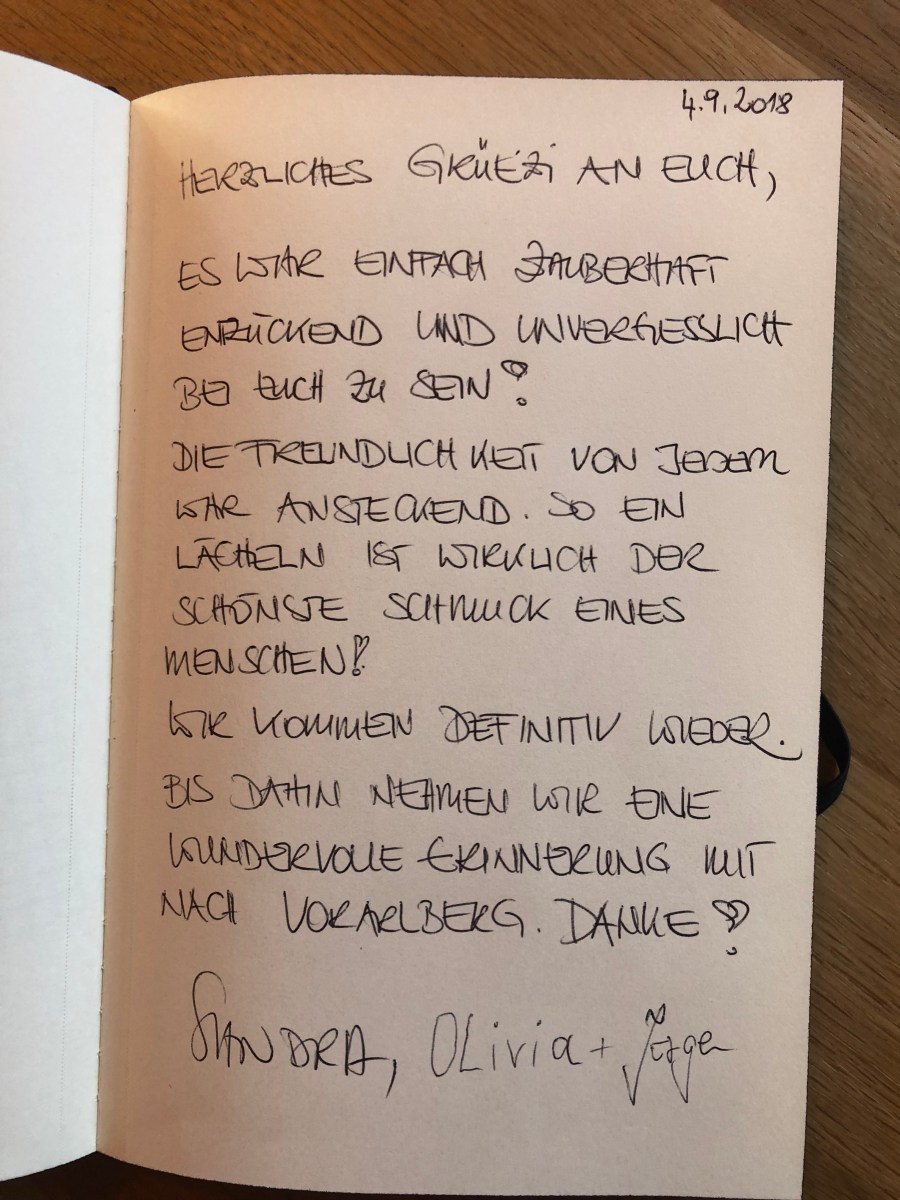 4.9.2018
HERZLICHES GRÜEZI AN EUCH,
ES WAR EINFACH ZAUBERHAFT
ENZÜCKEND UND UNVERGESSLICH
BEI EUCH ZU SEIN!
DIE FREUNDLICHKEIT VON JEDEM
WAR ANSTECKEND. SO EIN
LÄCHELN IST WIRKLICH DER
SCHÖNSTE SCHMUCK EINES
MENSCHEN!
WIR KOMMEN DEFINITIV WIEDER.
BIS DAHIN NEHMEN WIR EINE
WUNDERVOLLE ERINNERUNG MIT
NACH VORARLBERG. DANKE!
SANDRA, OLivia +